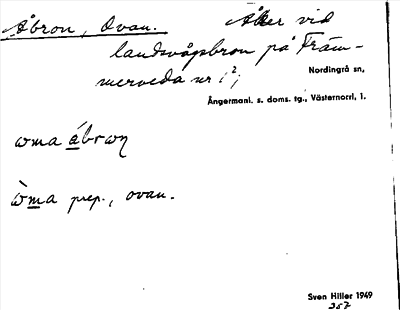 Åbron, Ovan.
Åker vid
landsvägsbron på Främ-
merveda nr 1²;
Nordingrå sn,
Ångermanl. s. doms. tg., Västernorrl. l.
ɷma ábrɷŋ
ɷ̀ma prep., ovan.
Sven Hiller 1949
357